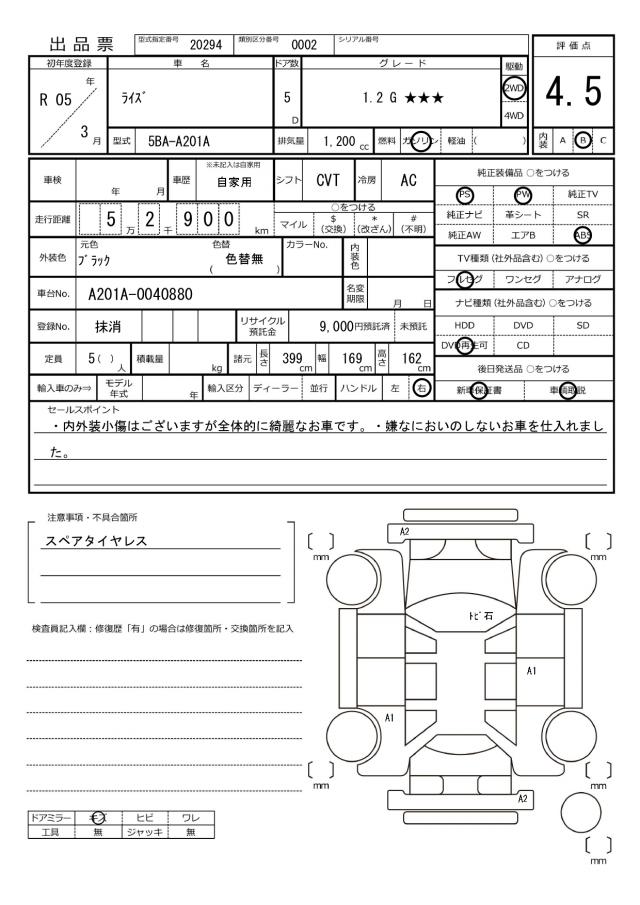 出品票 型式指定番号 20294 類別区分番号 0002 シリアル番号
評価点
4.5
内装 A B C
初年度登録 車名 ドア数 グレード 駆動
R 05 年 3 月
ライズ 5 D 1.2 G ★★★ 2WD 4WD
型式 5BA-A201A 排気量 1,200 cc 燃料 ガソリン 軽油 ( )
車検 年 月 車歴 ※未記入は自家用 自家用 シフト CVT 冷房 AC
走行距離 5 万 2 千 9 0 0 km
○をつける
マイル $(交換) *(改ざん) #(不明)
外装色 元色 ブラック 色替 ( 色替無 ) カラーNo. 内装色
車台No. A201A-0040880 名変期限 月 日
登録No. 抹消 リサイクル預託金 9,000円預託済 未預託
定員 5( ) 人 積載量 kg 諸元 長さ 399 cm 幅 169 cm 高さ 162 cm
輸入車のみ⇒ モデル年式 年 輸入区分 ディーラー 並行 ハンドル 左 右
純正装備品 ○をつける
PS PW 純正TV
純正ナビ 革シート SR
純正AW エアB ABS
TV種類 (社外品含む) ○をつける
フルセグ ワンセグ アナログ
ナビ種類 (社外品含む) ○をつける
HDD DVD SD
DVD再生可 CD
後日発送品 ○をつける
新車保証書 車輌取説
セールスポイント
・内外装小傷はございますが全体的に綺麗なお車です。・嫌なにおいのしないお車を仕入れまし
た。
注意事項・不具合箇所
スペアタイヤレス
検査員記入欄：修復歴「有」の場合は修復箇所・交換箇所を記入
ドアミラー キズ ヒビ ワレ
工具 無 ジャッキ 無
A2
mm
mm
トビ石
A1
A1
mm
mm
A2
mm